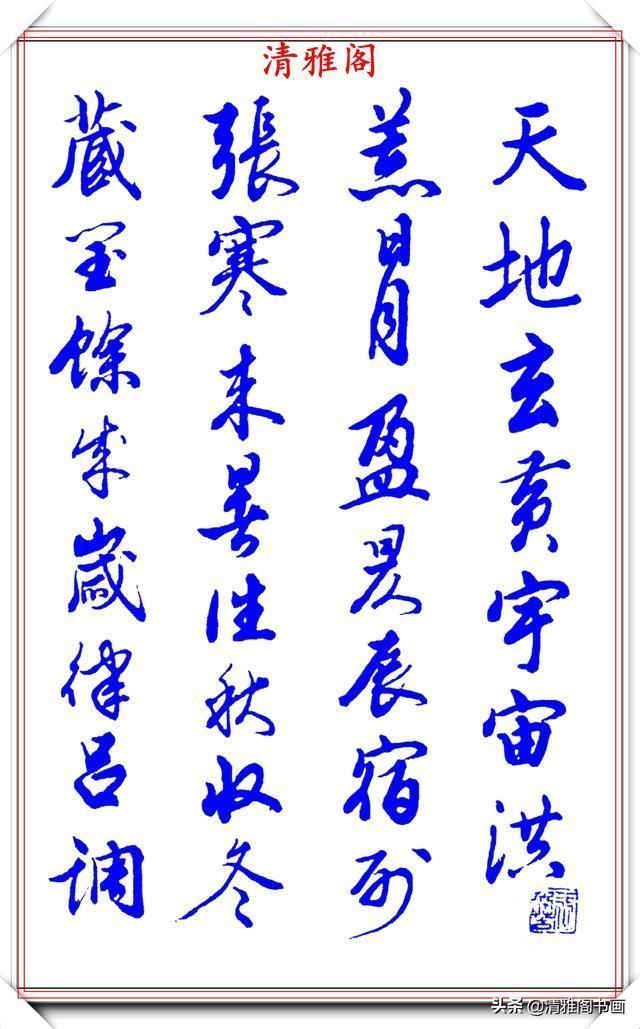 清雅阁
天地玄黄宇宙洪
荒日月盈昃辰宿列
張寒来暑往秋收冬
蔵閏餘成歲律吕调
头条 @清雅阁书画